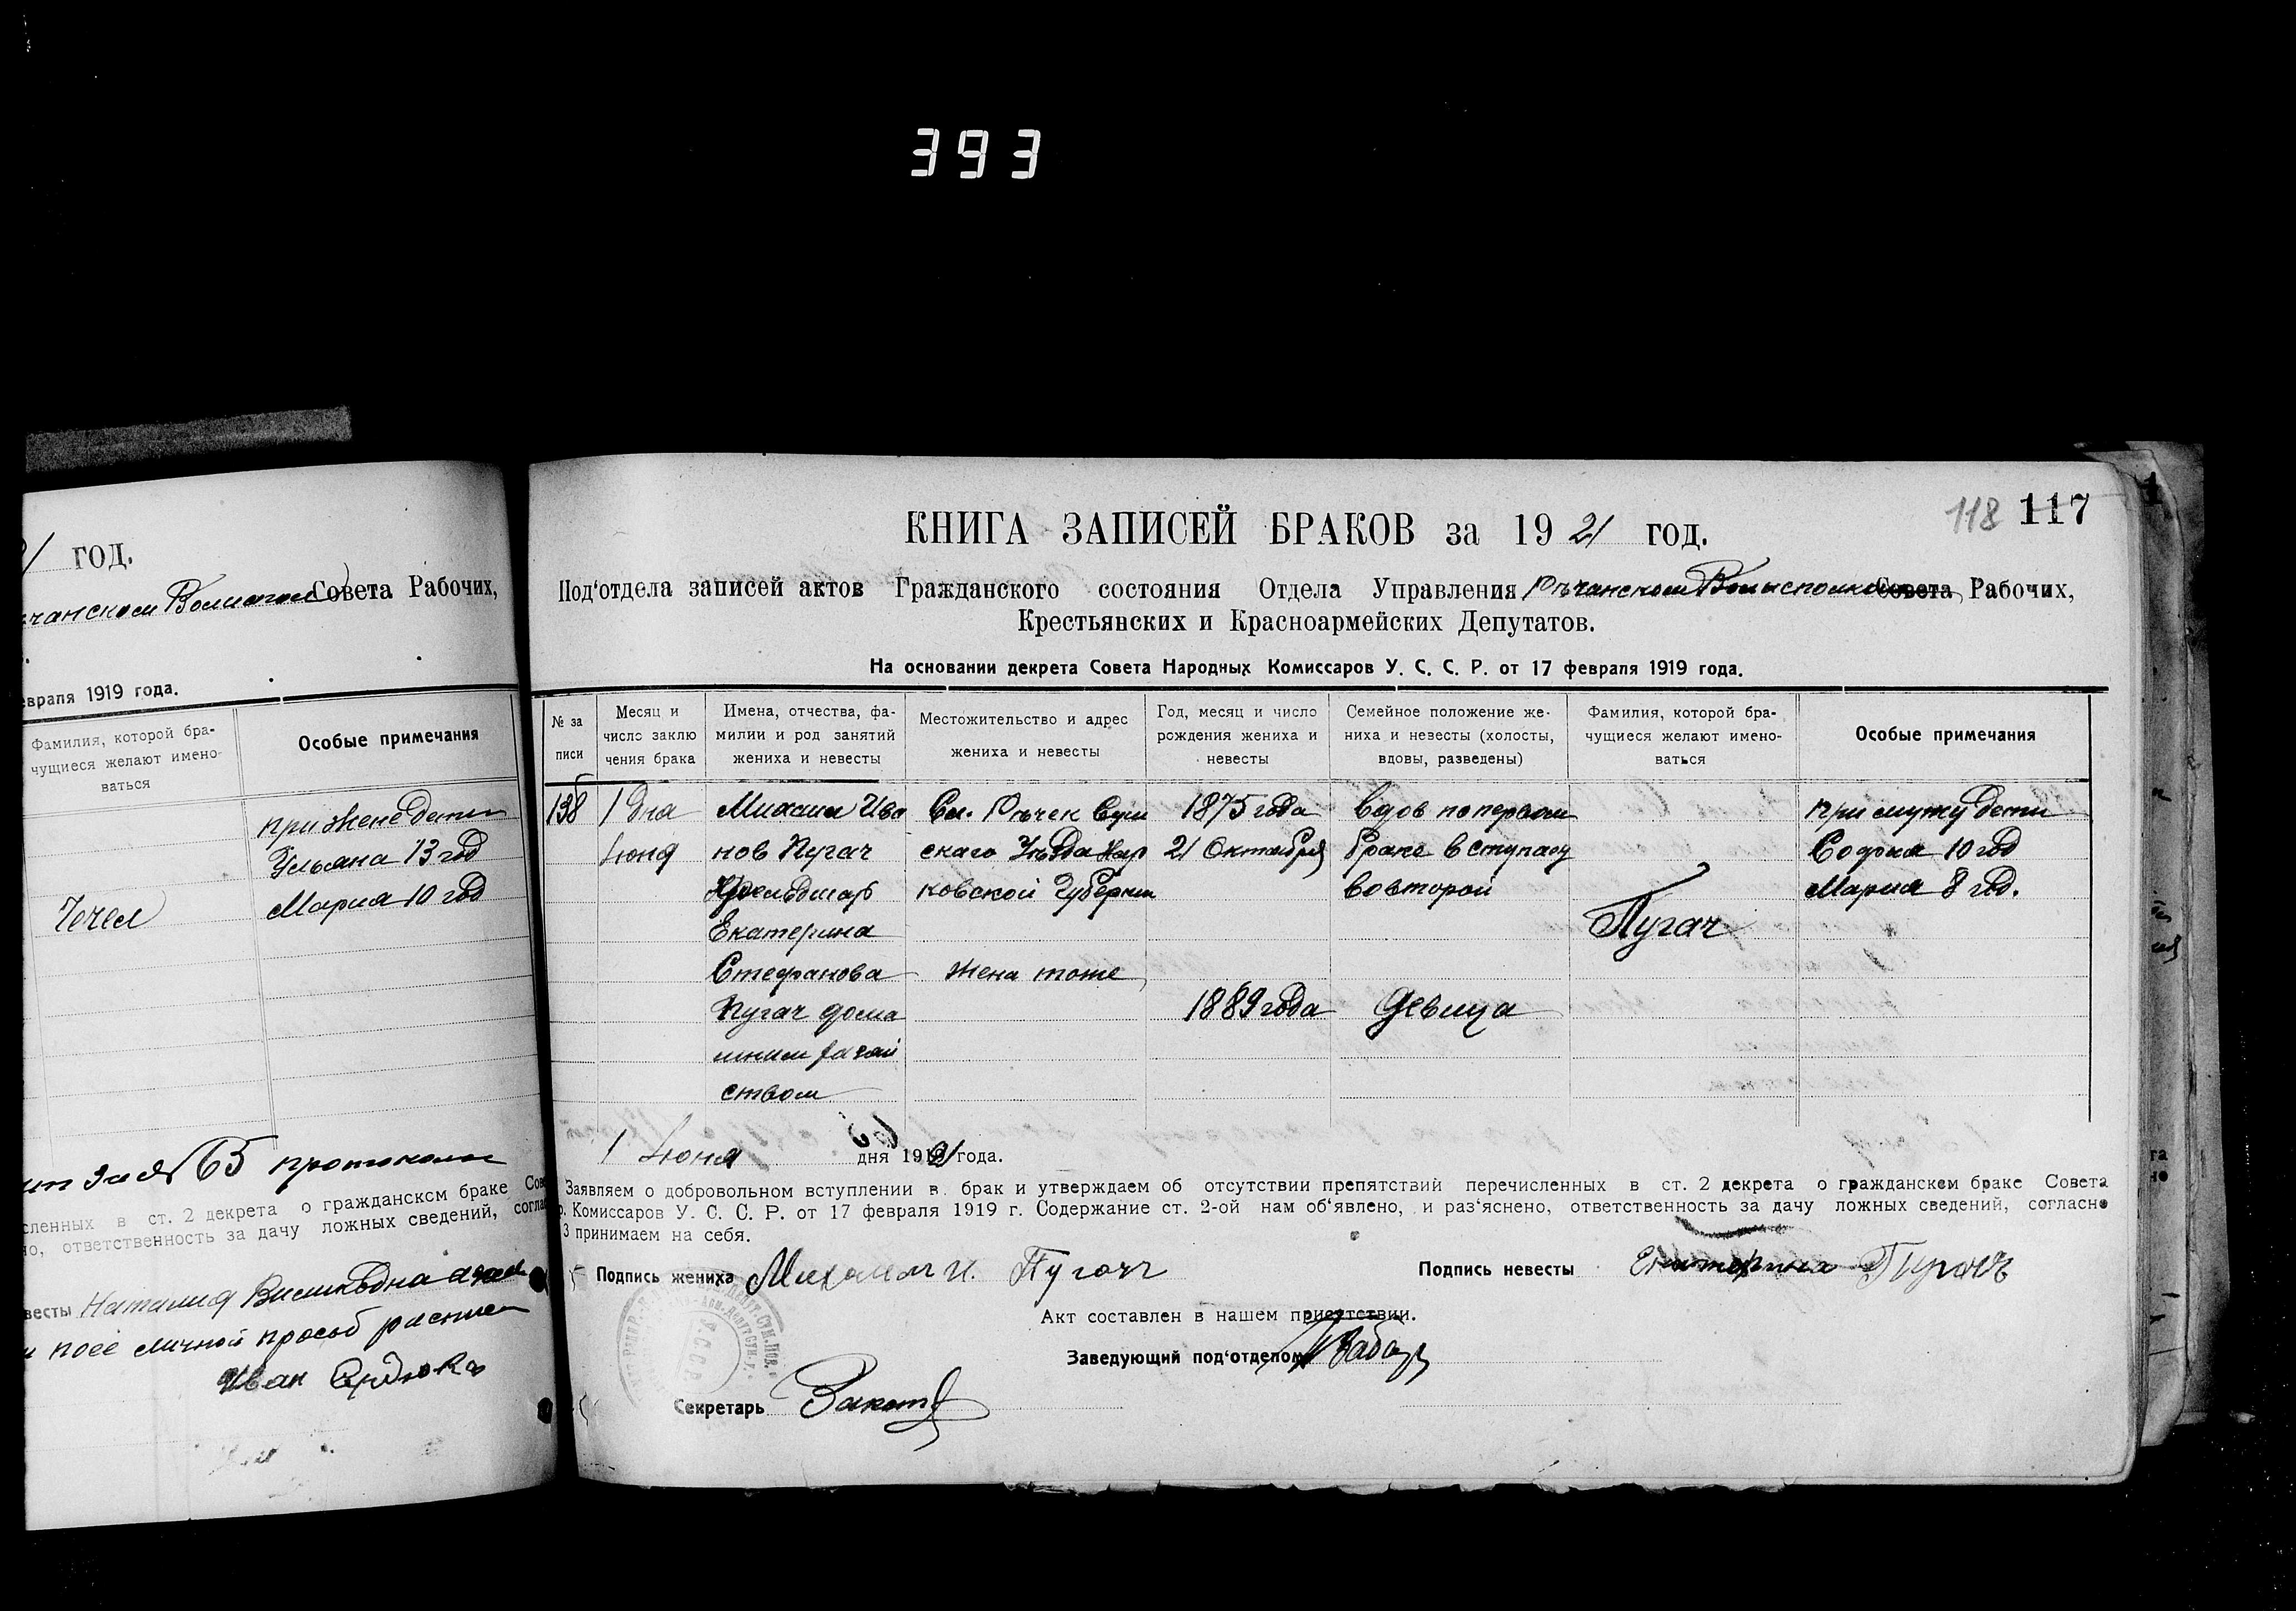 393
1 год.
чанском Совета Рабочих,
евраля 1919 года.
Фамилия, которой бра-
чущиеся желают имено-
ваться
Особые примечания
при жене дети
Ульяна 13 год
Мария 10 год
Чечел
65 протоколы
сленных в ст. 2 декрета о гражданском браке Сове
но, ответственность за дачу ложных сведений, соглас
весты Наталия
личной просьб
Иван
118 117
КНИГА ЗАПИСЕЙ БРАКОВ за 1921 год.
Под‘отдела записей актов Гражданского состояния Отдела Управления Речанском Волисполком Совета Рабочих,
Крестьянских и Красноармейских Депутатов.
На основании декрета Совета Народных Комиссаров У. С. С. Р. от 17 февраля 1919 года.
№ за
писи
Месяц и
число заклю
чения брака
Имена, отчества, фа-
милии и род занятий
жениха и невесты
Местожительство и адрес
жениха и невесты
Год, месяц и число
рождения жениха и
невесты
Семейное положение же-
ниха и невесты (холосты,
вдовы, разведены)
Фамилия, которой бра-
чущиеся желают имено-
ваться
Особые примечания
138 1 дня Михаил Ива Сл. Речек Сум 1875 года вдов по первом при мужу дети
Июня нов Пугач скаго Уезда Хар 21 Октября браке вступаю София 10 год
ковской Губернии во второй Мария 8 год.
Екатерина Пугач
Стефанова жена тоже
Пугач дома 1889 года девица
шним хазяй
ством
1 Июня дня 1921 года.
Заявляем о добровольном вступлении в брак и утверждаем об отсутствии препятствий перечисленных в ст. 2 декрета о гражданском браке Совета
р. Комиссаров У. С. С. Р. от 17 февраля 1919 г. Содержание ст. 2-ой нам об‘явлено, и раз‘яснено, ответственность за дачу ложных сведений, согласно
3 принимаем на себя.
Подпись жениха Михаил И. Пугач Подпись невесты Екатерина Пугачъ
Акт составлен в нашем присутствии.
Заведующий под‘отделом
Секретарь